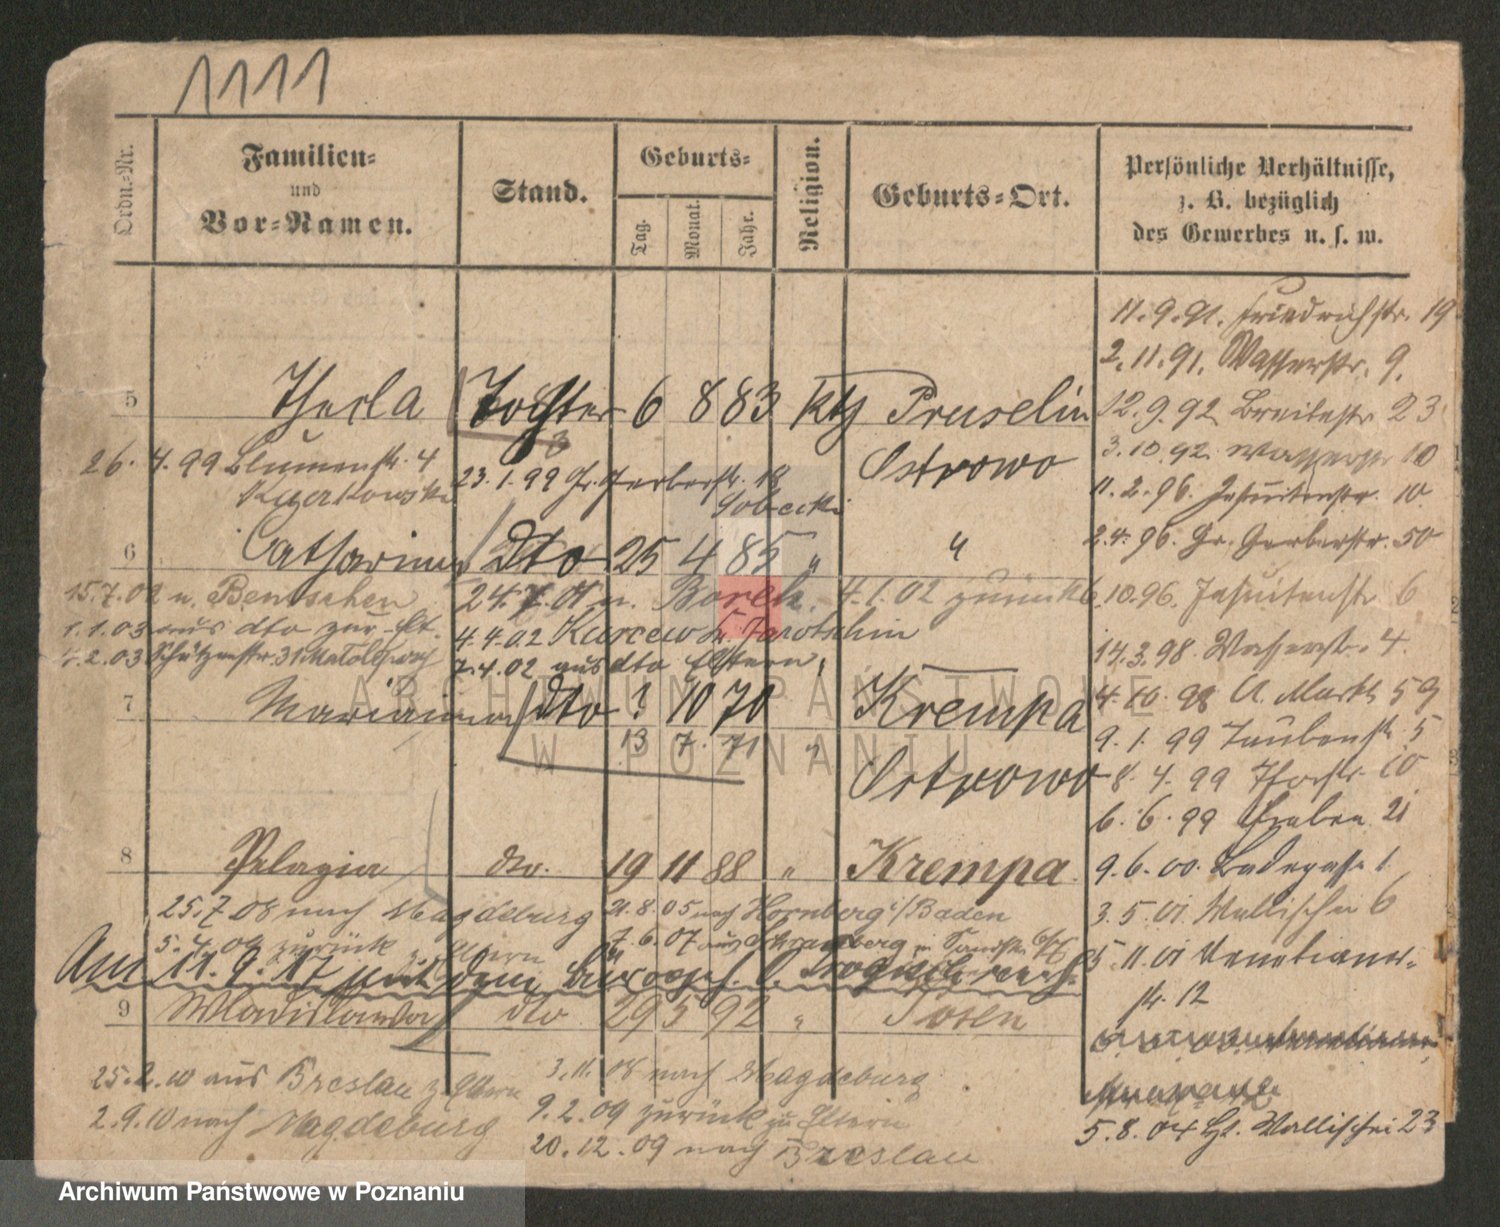 1111
Ordn.-Nr.
Familien-
und
Vor-Namen.
Stand.
Geburts-
Tag.
Monat.
Jahr.
Religion.
Geburts-Ort.
Persönliche Verhältnisse,
z. B. bezüglich
des Gewerbes u. s. w.
11.9.91. Friedrichstr. 19
2.11.91. Wasserstr. 9.
5 Thecla Tochter 6 8 83 kth Pruselin
12.9.92 Breitestr 23
Ostrowo
3.10.92. Wasserstr 10
26. 4.99 Blumenstr. 4
23.1.99 Gr. Gerberstr. 18
11.2.96. Jesuitenstr. 10.
Sobecki
6 Catharina dto 25 4 85 " "
2.4.96. Gr. Gerberstr. 50
15.7.02 n. Bentschen
24.7.01 n. Borek. 4.1.02 zurück
6.10.96. Jesuitenstr 6
1.1.03 aus dto zur
4.4.02 Karcew Kr. Jarotschin
2.03 Schützenstr. 31
7.4.02 aus dto Eltern
14.3.98. Wasserstr. 4.
7 Marianna dto ? 10 70 Krempa
4.10.98 A. Markt 59
13 7. 71 "
9.1.99 Taubenstr 5
Ostrowo
8.4.99 10
6.6.99 Graben 21
8 Pelagia dto. 19 11 88 " Krempa
9.6.00. Badegasse 1.
25.7.08 nach Magdeburg
21.8.05 nach Hornberg i/Baden
3.5.01. Wallischei 6
5.4.09 zurück z. Eltern
7.6.07 aus
5.11.01 Venetianer-
str. 12
Am 11.9.17 mit dem
9 Wladislawa dto 29 5 92 " Posen
25.2.10 aus Breslau z. Eltern
3.11.08 nach Magdeburg
2.9.10 nach Magdeburg
9.2.09 zurück zu Eltern
20.12.09 nach Breslau
5.8.04 Wallischei 23
ARCHIWUM PAŃSTWOWE
W POZNANIU
Archiwum Państwowe w Poznaniu